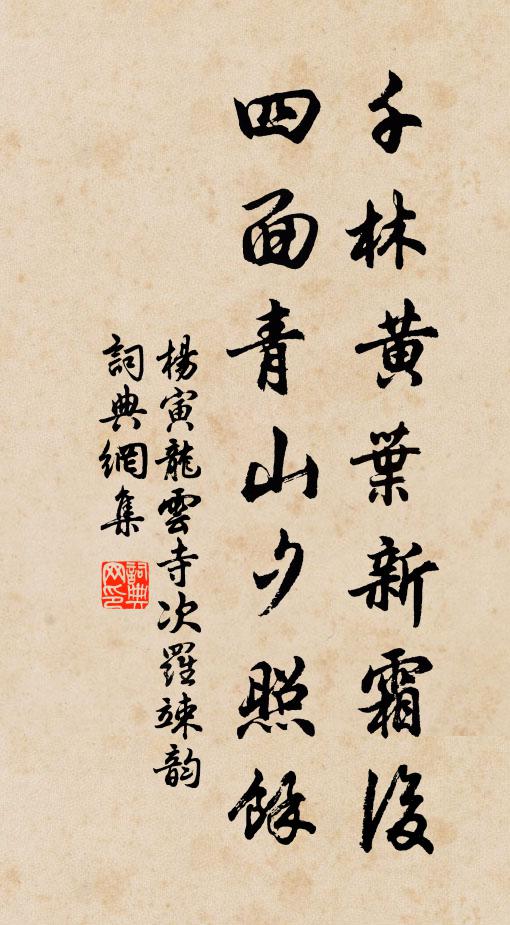 千林黃葉新霜後
四面青山夕照餘
楊寅龍雲寺次羅竦韵
詞典網集
詞典網印